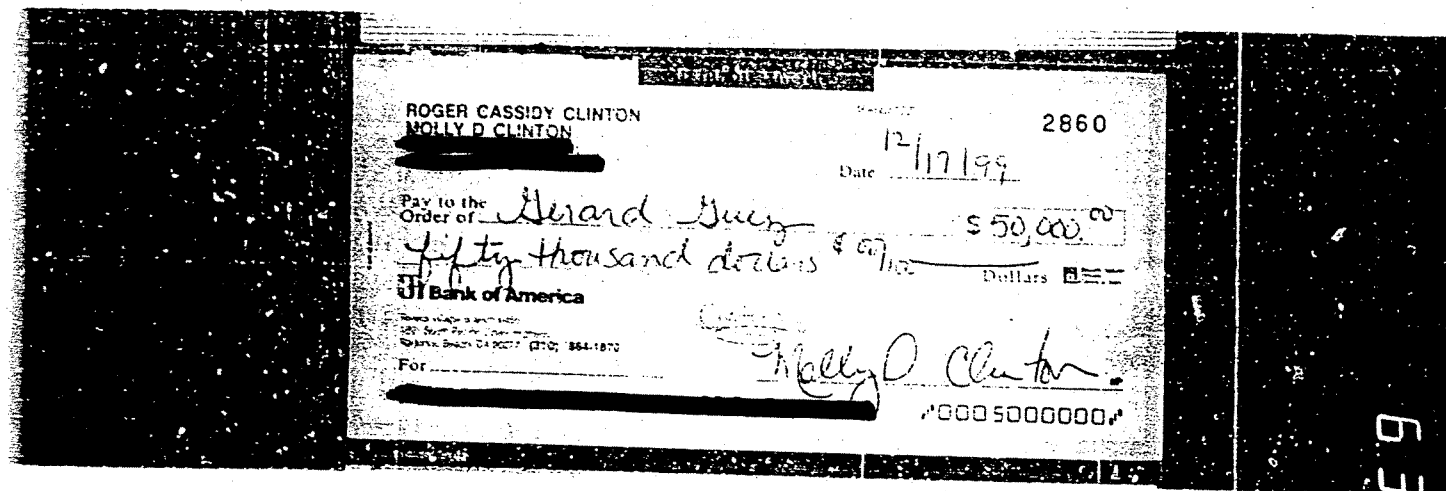 ROGER CASSIDY CLINTON
MOLLY D CLINTON
2860
Date 12/17/99
Pay to the
Order of Gerard Guez $ 50,000.00
fifty thousand dollars & 00/100 Dollars
Bank of America
(310)
For Molly D Clinton
0005000000
63